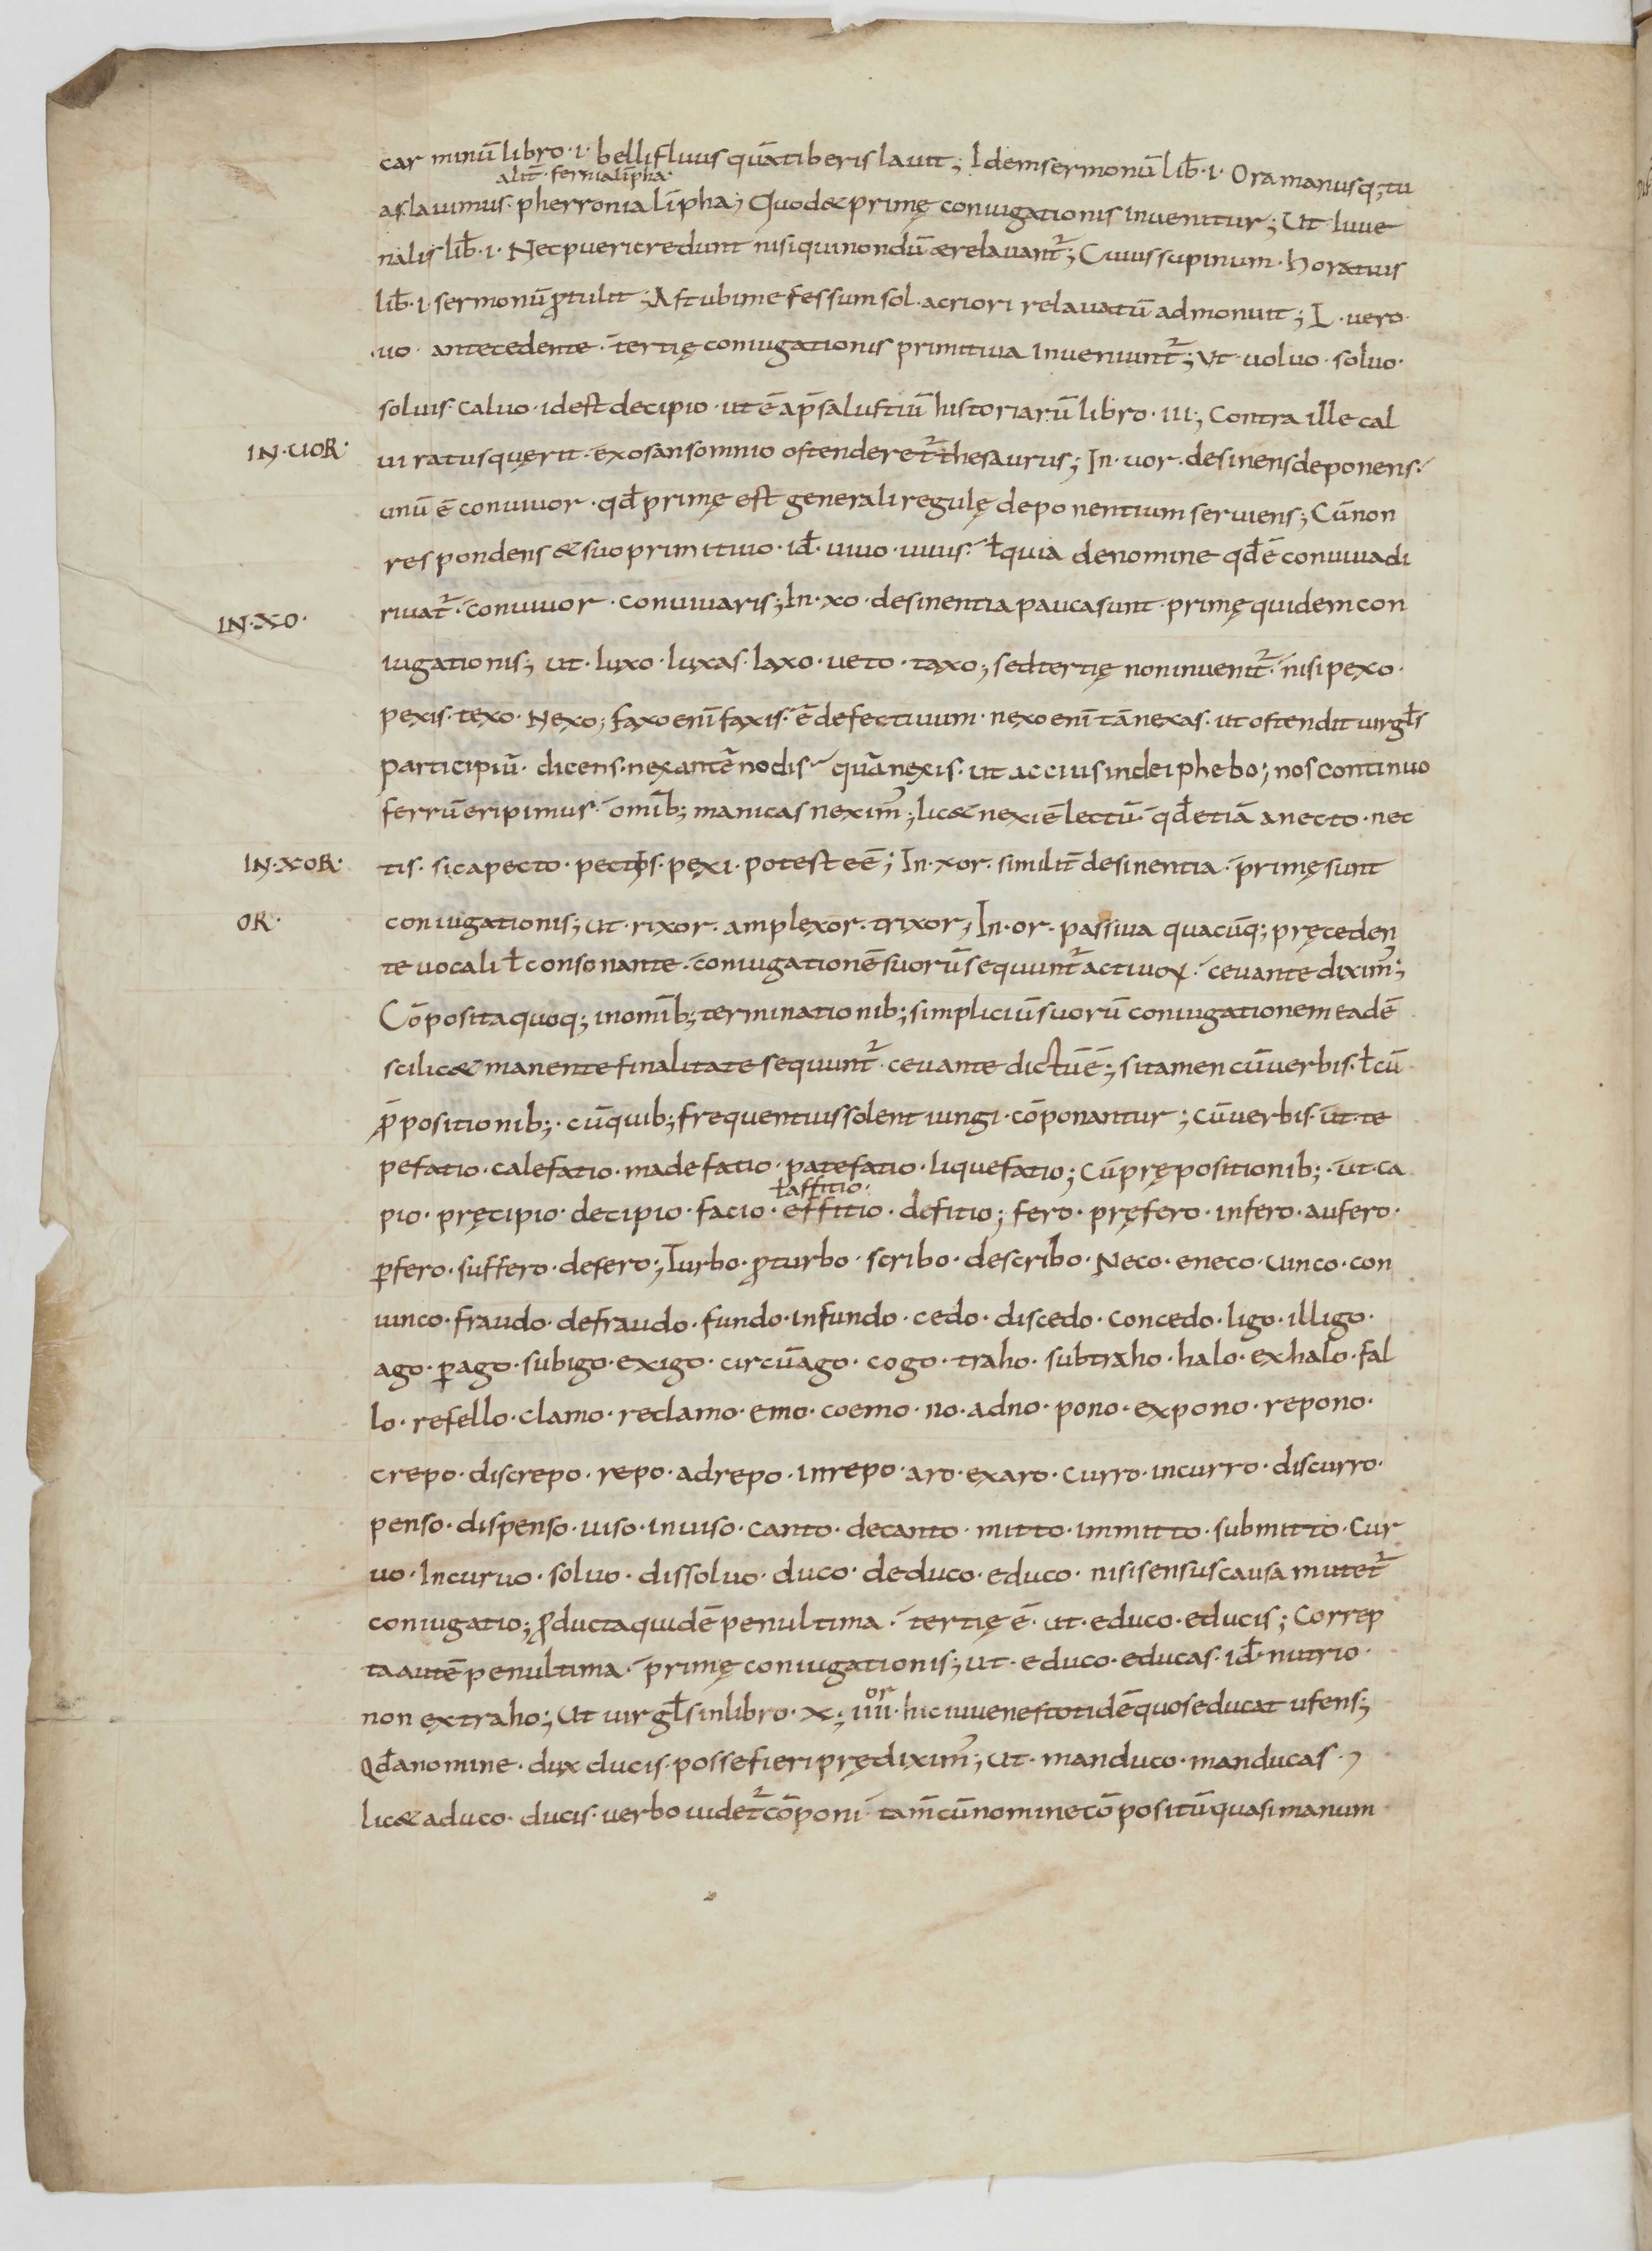 car minū libro·i· belli Fluuus quā tiberis lauit; Idem sermonū lib̄·i· Ora manusq; tu
alit̄ fernialīpha·
as lauimus· pherronia līpha; Quod & primę coniugationis inuenitur; Ut Iuue
nalis lib̄·i· Nec pueri credunt nisi qui nondū aere lauant᷑; Cuius supinum· horatius
lib̄·i· sermonū ꝓtulit; Ast ubi me fessum sol· acriori relauatū admonuit; L· vero·
·uo· antecedente· tertię coniugationis primitiua inueniunt᷑; Ut· uoluo· soluo·
soluis· caluo· id est decipio· ut ē ap̄ salustiū historiarū libro· iii; Contra ille cal
IN·UOR·
ui ratus quęrit· ex osan somnio ostenderet᷑ thesaurus; In· uor· desinens deponens·
unū ē conuiuor· qd̄ primę est generali regulę deponentium seruiens; Cū non
respondens & suo primitiuo· id̄· uiuo· uiuis· ł quia de nomine qd̄ ē conuiua di
riuat᷑· conuiuor· conuiuaris; In· xo· desinentia pauca sunt· primę quidem con
IN·XO·
iugationis; ut· luxo· luxas· laxo· ueto· taxo; sed tertię non inuenit᷑· nisi pexo·
pexis· texo· Nexo; faxo enī faxis· ē defectiuum· nexo enī tā nexas· ut ostendit uirgl̄s
participiū· dicens· nexantē nodis quā nexis· ut accius in deiphebo; nos continuo
ferrū eripimus· omīb; manicas neximꝰ; lic& nexi ē lectū· qd̄ etiā a necto· nec
IN·XOR·
tis· sic a pecto· pectis· pexi· potest eē; In· xor· similit̄ desinentia· primę sunt
OR·
coniugationis; ut· rixor· amplexor· trixor; In· or· passiua quacūq; pręceden
te uocali ł consonante· coniugationē suorū sequunt᷑ actiuoꝝ· ceu ante diximꝰ;
Cōposita quoq; in omīb; terminationib; simpliciū suorū coniugationem eadē
scilic& manente finalitate sequunt᷑· ceu ante dictū ē; si tamen cū uerbis· ł cū
p̄positionib;· cū quib; frequentius solent iungi· cōponantur; cū uerbis· ut· te
pefatio· calefatio· madefatio· patefatio· liquefatio; Cū prępositionib;· ut· ca
ł affitio·
pio· pręcipio· decipio· facio· effitio· defitio; fero· pręfero· infero· aufero·
ꝑfero· suffero· defero; Turbo· ꝓturbo· scribo· describo· Neco· eneco· Uinco· con
uinco· fraudo· defraudo· fundo· infundo· cedo· discedo· concedo· ligo· illigo·
ago· ꝑago· subigo· exigo· circūago· cogo· traho· subtraho· halo· exhalo· fal
lo· refello· clamo· reclamo· emo· coemo· no· adno· pono· expono· repono·
crepo· discrepo· repo· adrepo· inrepo· aro· exaro· curro· incurro· discurro·
penso· dispenso· uiso· inuiso· canto· decanto· mitto· immitto· submitto· Cur
uo· Incuruo· soluo· dissoluo· duco· deduco· educo· nisi sensus causa mutet᷑
coniugatio; ꝓducta quidē penultima· tertię ē· ut· educo· educis; Correp
ta autē penultima· primę coniugationis; ut· educo· educas· id̄· nutrio·
non extraho; Ut uirgl̄s in libro· x; iiiiᵒʳ· hic iuuenes totidē quos educat ufens;
Qd̄ a nomine· dux ducis· posse fieri prędiximꝰ; ut· manduco· manducas·
lic& a duco· ducis· uerbo uidet᷑ cōponi· tam̄ cū nomine cōpositū quasi manum